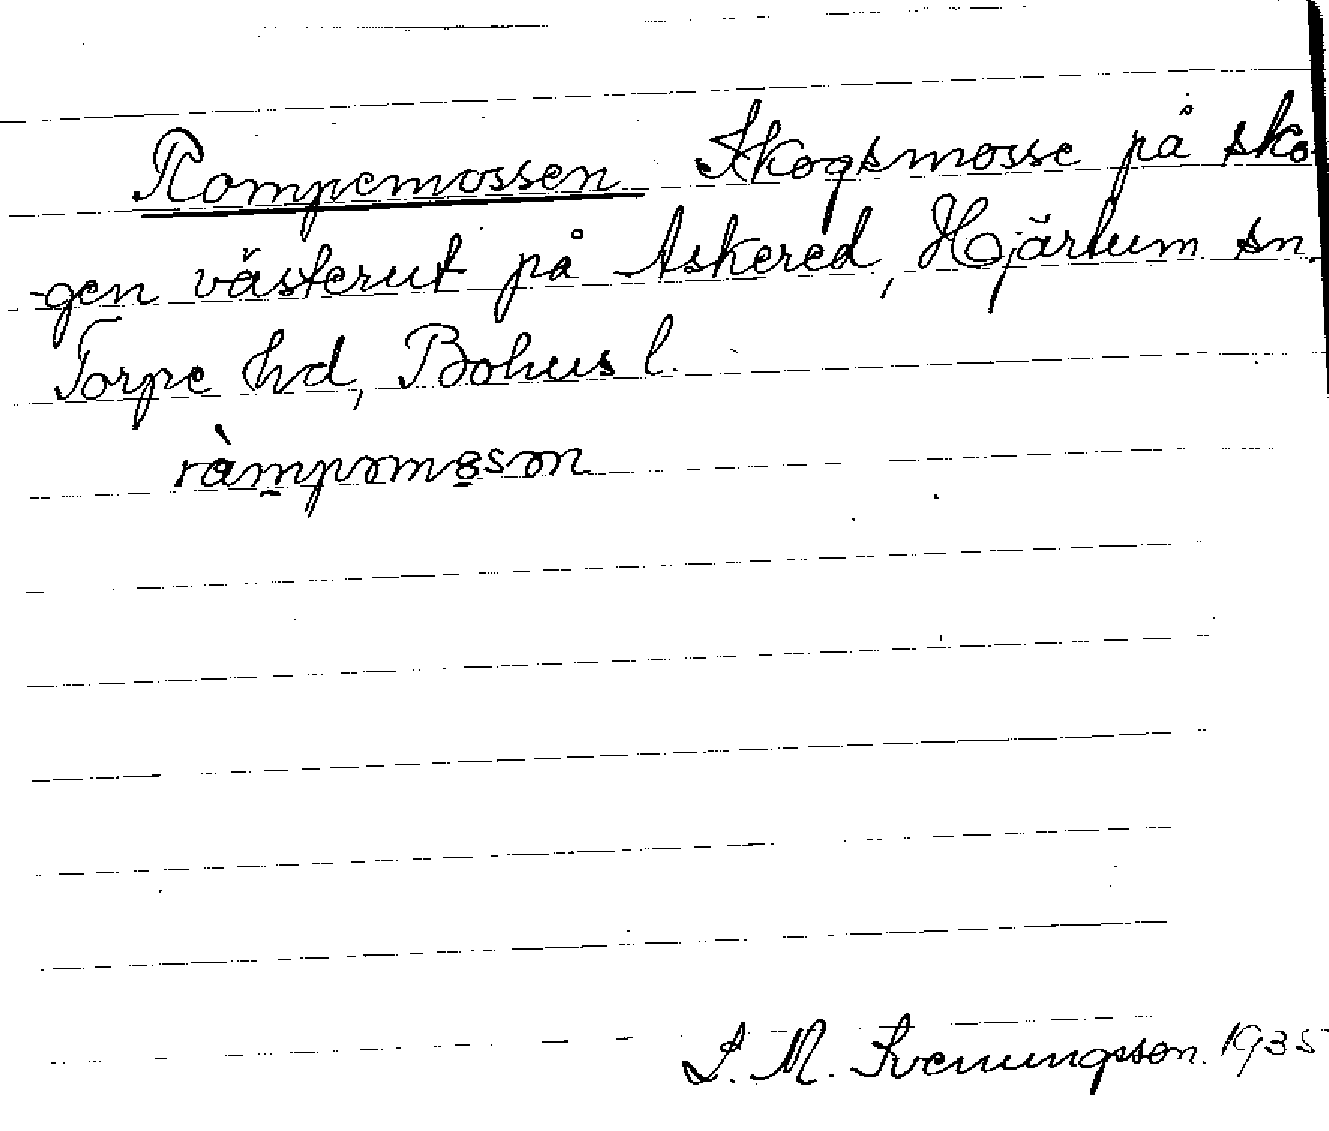 Rompemossen Skogsmosse på sko-
gen västerut på Askered, Hjärtum sn.
Torpe hd, Bohus l.
ràmpəmɵsən
S. M. Svenungsson. 1935